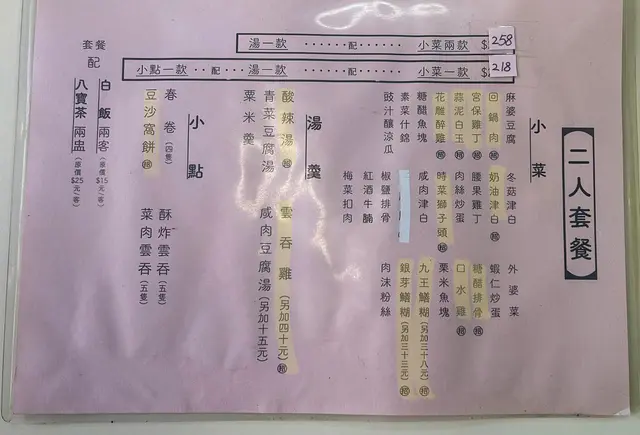 二人套餐
小菜
麻婆豆腐　冬菇津白　外婆菜
回鍋肉　奶油津白　蝦仁炒蛋
宮保雞丁　腰果雞丁　糖醋排骨
蒜泥白玉　肉絲炒蛋　口水雞
花雕醉雞　時菜獅子頭　栗米魚塊
糖醋魚塊　咸肉津白　九王鱔糊(另加三十八元)
素菜什錦　銀芽鱔糊(另加三十三元)
豉汁釀涼瓜　椒鹽排骨　肉沫粉絲
紅酒牛腩
梅菜扣肉
湯羹
酸辣湯　雲吞雞(另加四十元)
青菜豆腐湯　咸肉豆腐湯(另加十五元)
粟米羹
小點
春卷(四隻)　酥炸雲吞(五隻)
豆沙窩餅　菜肉雲吞(五隻)
套餐配
白飯兩客(原價$15元/客)
八寶茶兩盅(原價$25元/客)
湯一款 ······· 配 ······· 小菜兩款 $258
小點一款 ·· 配 ·· 湯一款 ···· 配 ···· 小菜一款 $218